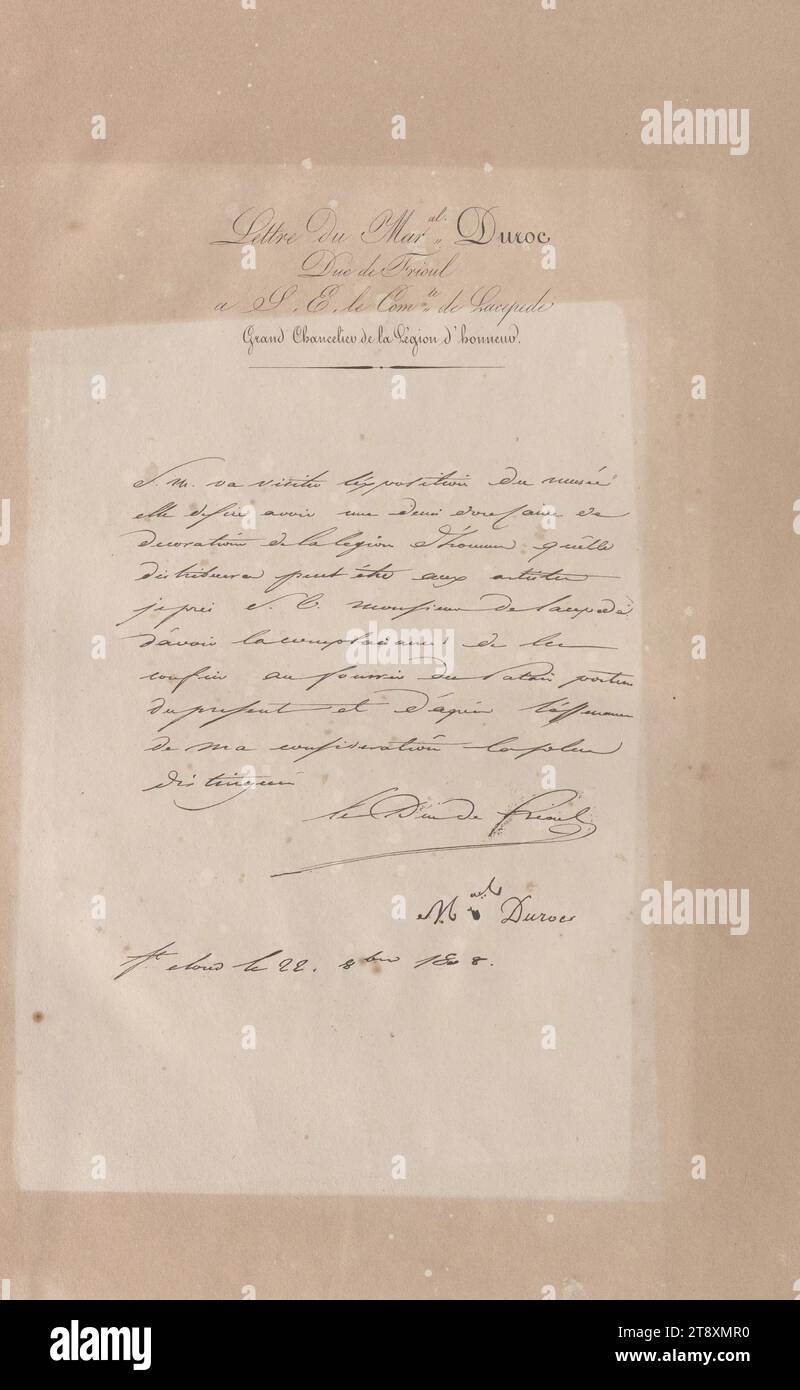 Lettre du Mar.al Duroc
Duc de Frioul
a S. E. le Com.te de Lacepede
Grand Chancelier de la Légion d'honneur.
S. m. va visiter l'exposition du musée
elle desire avoir une demi douzaine de
decoration de la legion d'honneur quelle
distribuera peut être aux artistes
je prie S. E. monsieur de lacepede
d'avoir la complaisance de les
confier au fourrier du Palais porteur
du present et d'agréer l'assurance
de ma consideration la plus
distinguée
le Duc de Frioul
M.al Duroc
St cloud le 22. 8bre 1808.
alamy
Image ID: 2T8XMR0
www.alamy.com